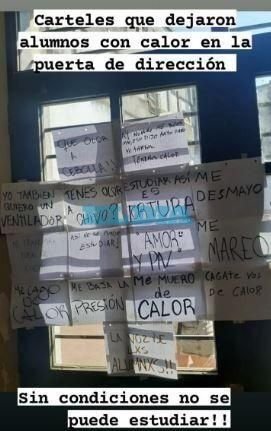 Carteles que dejaron
alumnos con calor en la
puerta de dirección
QUE OLOR
A
CEBOLLA!!
TENGAS CALOR
YO TAMBIEN
QUIERO UN
VENTILADOR
TENES OLOR
A
CHIVO?
ESTUDIAR ASÍ
ES
TORTURA
ME
DESMAYO
ASI NO SE PUEDE
ESTUDIAR!
"AMOR"
Y PAZ"
ME
MAREO
ME CAGO
DE
CALOR
ME BAJA LA
PRESIÓN
Me MUERO
de
CALOR
CAGATE VOS
DE CALOR
LA VOZ DE
LXS
ALUMNXS!!
Sin condiciones no se
puede estudiar!!